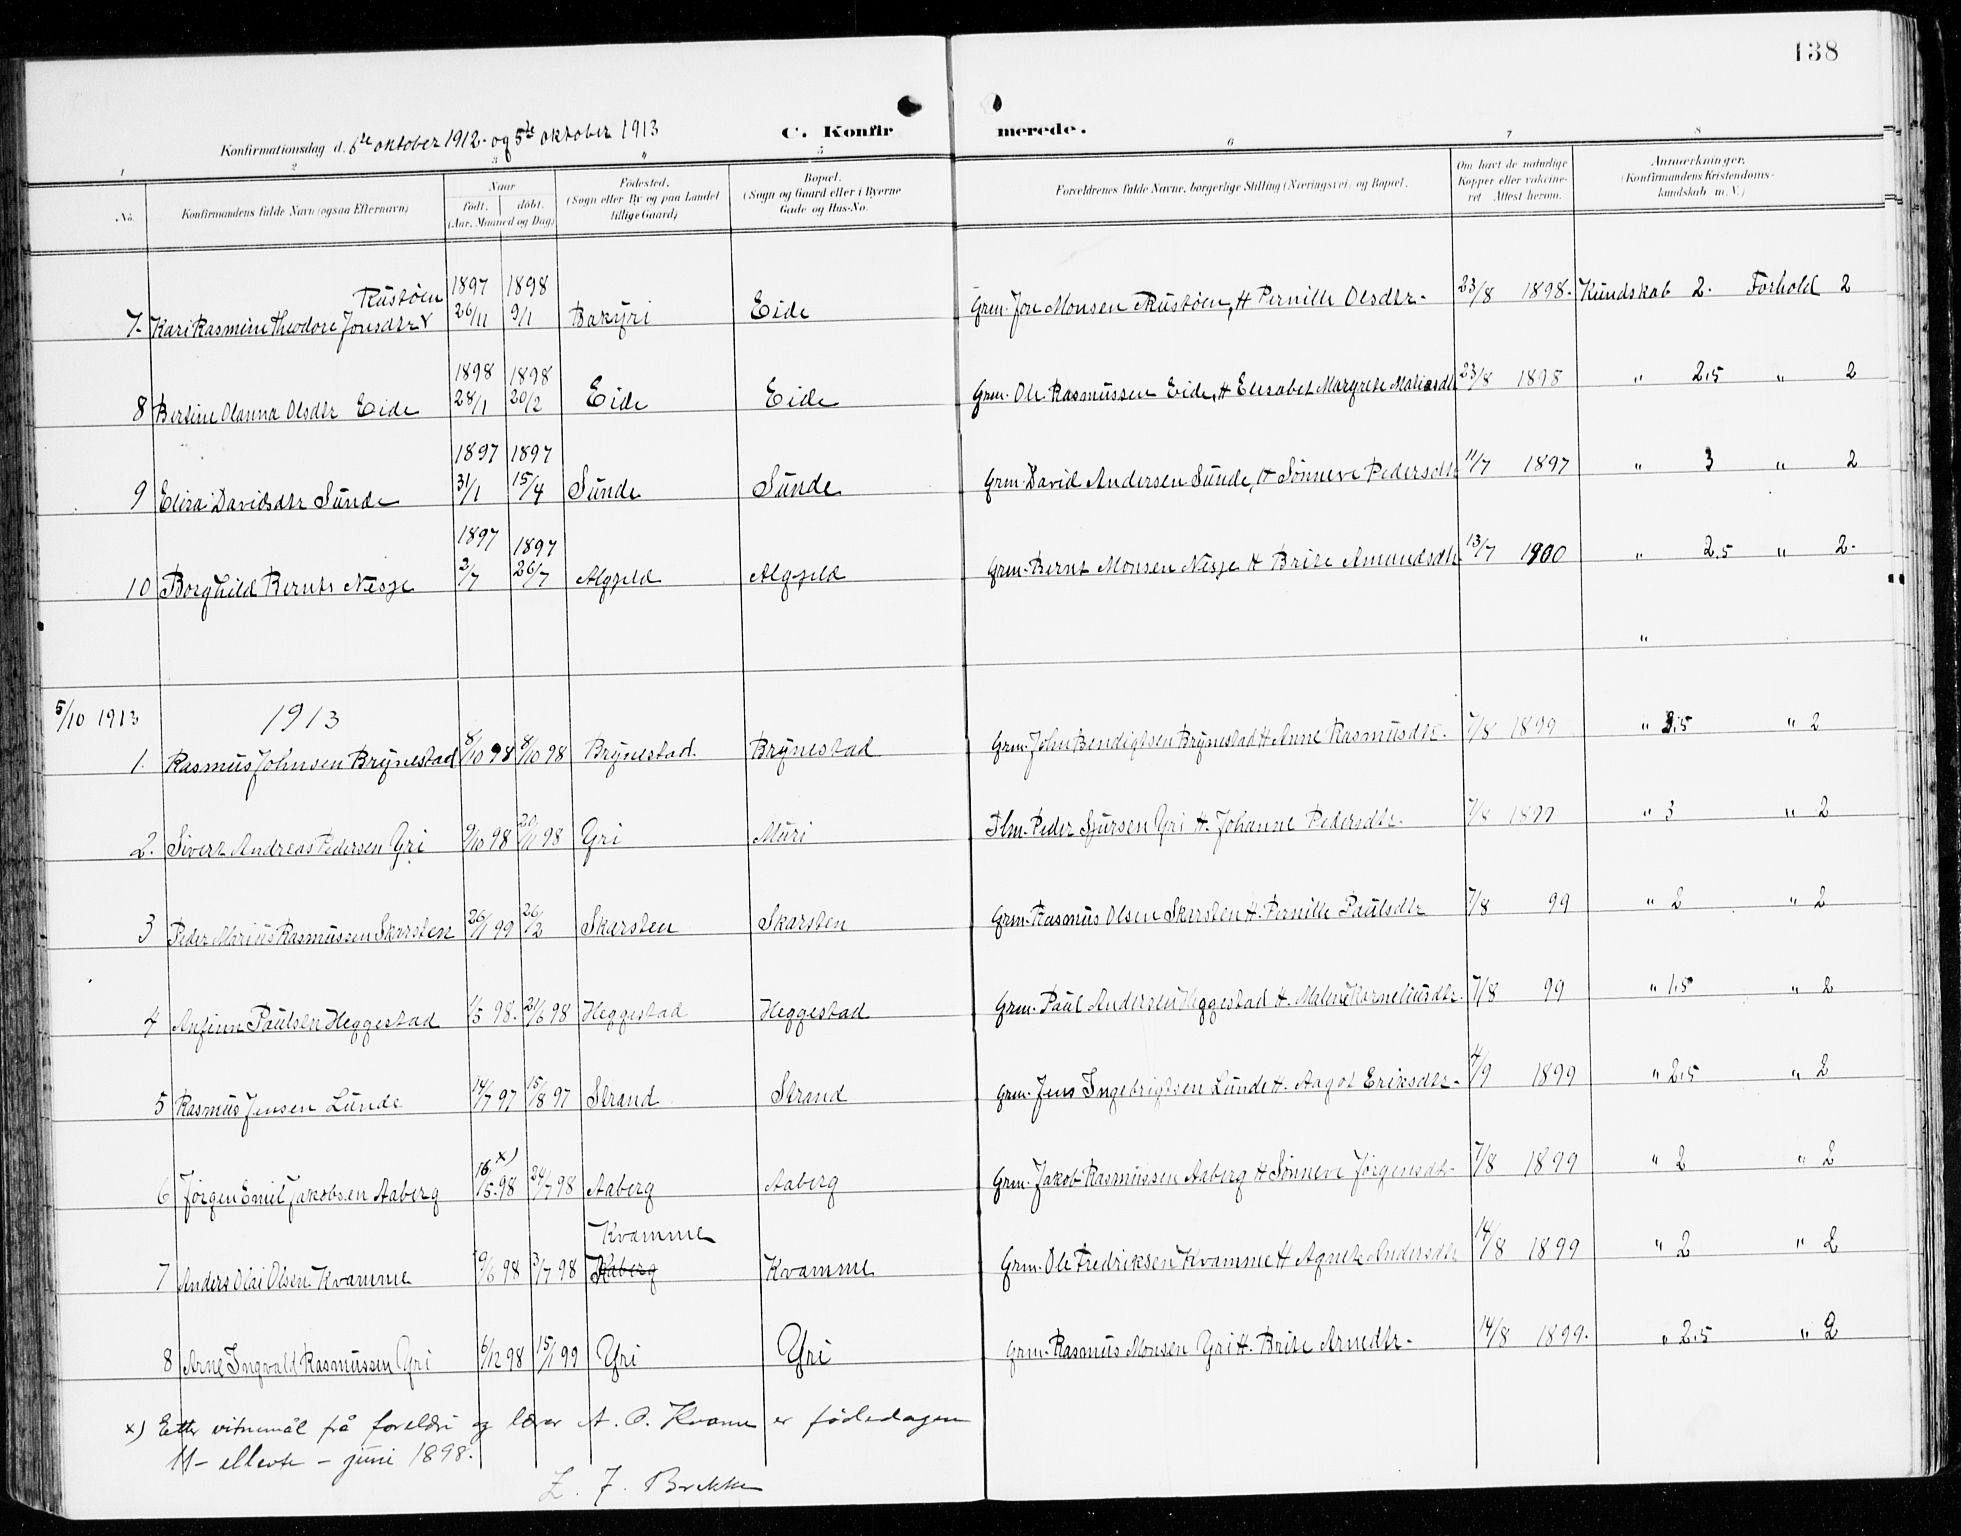 138
Konfirmationsdag d. 6te oktober 1912. og 5te oktober 1913 C. Konfirmerede.
1 2 3 " 5 6 7 8
No. Konfirmandens fulde Navn (ogsaa Efternavn) Naar født. døbt. (Aar, Maaned og Dag) Fødested. (Sogn eller By og paa Landet tillige Gaard) Bopæl. (Sogn og Gaard eller i Byerne Gade og Hus-No. Forældrenes fulde Navne, borgerlige Stilling (Næringsvei) og Bopæl. Om havt de naturlige Kopper eller vakcineret Attest herom. Anmærkninger. (Konfirmandens Kristendomskundskab m. V.)
7. Kari Rasmine Theodore Jonsdtr Rustøen 1897 26/11 1898 9/1 Bakyri Eide Grm. Jon Monsen Rustøen, H Pernille Olsdtr. 23/8 1898. Kundskab 2. Forhold 2
8 Bertine Olanna Olsdtr Eide 1898 28/1 1898 20/2 Eide Eide Grm. Ole Rasmussen Eide, H Elisabet Margrete Matiasdtr 23/8 1898 " 2,5 " 2
9 Elisa Davidsdtr Sunde 1897 31/1 1897 15/4 Sunde Sunde Grm. David Andersen Sunde, H Sønneve Pedersdtr 11/7 1897 " 3 " 2
10 Borghild Bernts Nesje 1897 2/7 1897 26/7 Algjeld Algjeld Grm. Bernt Monsen Nesje H Brite Amundsdtr 13/7 1900 " 2,5 " 2.
"
5/10 1913 1913
1. Rasmus Johnsen Brynestad 8/10 98 8/10 98 Brynestad. Brynestad Grm. John Bendigtsen Brynestad H Anne Rasmusdtr. 7/8 1899 " 2,5 " 2
2. Sivert Andreas Pedersen Yri 9/10 98 20/11 98 Yri Muri Ilm. Peder Sjursen Yri H. Johanne Pedersdtr. 7/8 1899 " 3 " 2
3 Peder Marius Rasmussen Skarsten 26/1 99 26/2 Skarsten Skarsten Grm. Rasmus Olsen Skarsten H. Pernille Paulsdtr 7/8 99 " 2 " 2
4 Anfinn Paulsen Heggestad 11/5 98. 21/6 98 Heggestad Heggestad Grm. Paul Andersen Heggestad H. Malene Korneliusdtr. 7/8 99 " 1,5 " 2
5 Rasmus Jensen Lunde 14/7 97 15/8 97 Strand Strand Grm. Jens Ingebrigtsen Lunde H. Aagot Eriksdtr. 4/9 1899 " 2,5 " 2
6 Jørgen Emil Jakobsen Aaberg 16/5. 98 x) 24/7 98 Aaberg Aaberg Grm. Jakob Rasmussen Aaberg H Sønneve Jørgensdtr. 7/8 1899 " 2 " 2
7 Anders Olai Olsen Kvamme 10/6 98 3/7 98 Kvamme Aaberg Kvamme Grm. Ole Fredriksen Kvamme H Agnete Andersdtr 14/8 1899 " 2 " 2
8 Arne Ingvald Rasmussen Yri 6/12 98 15/1 99 Yri Yri Grm. Rasmus Monsen Yri H. Brite Arnedtr. 14/8 1899. " 2,5 " 2
x) Etter vitnemål frå foreldri og lærar A. O. Kvame er fødedagen
11 - ellevte - juni 1898.
E. J. Brekke